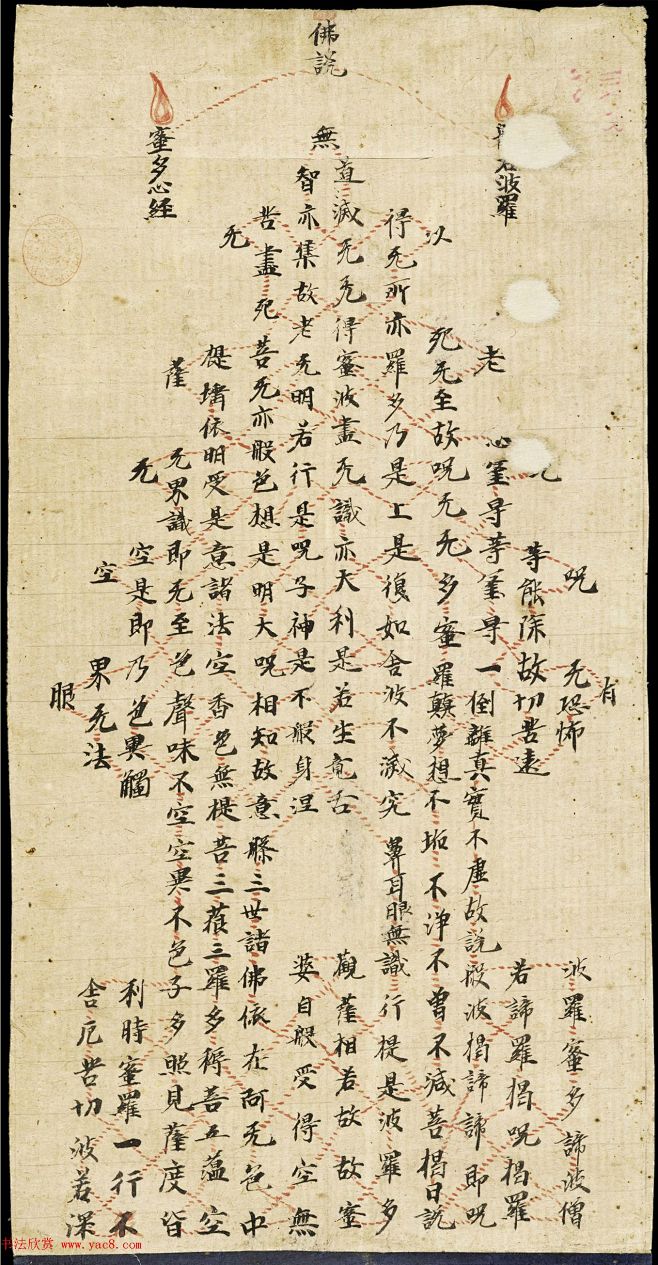 佛説
若波羅
蜜多心經
有
呪
无恐怖
波羅蜜多諦波僧
等能除故切苦遠
若諦羅揭呪揭羅
老
心㝵等㝵一倒離真實不虛故説般波揭諦諦即呪
以
死无至故呪无无多蜜羅顛夢想不垢不淨不曾不減菩揭日説
得无所亦羅多乃是上是復如舍波不滅究鼻耳眼無識行提是波羅多
道滅无无得蜜波盡无識亦大利是若生竟舌
觀薩相若故故蜜
無
智亦集故老无明若行是呪子神是不般身涅
婆自般受得空無
苦盡死菩无亦般色想是明大呪相知故意勝三世諸佛依在阿无色中
无
提埵依明受是意諸法空香色無提菩三藐三羅多得菩五蘊空
薩
无界識即无至色聲味不空空異不色子多照見薩度皆
无
空是即乃色異觸
利時蜜羅一行不
空
界无法
舍厄苦切波若深
眼
书法欣赏 www.yac8.com